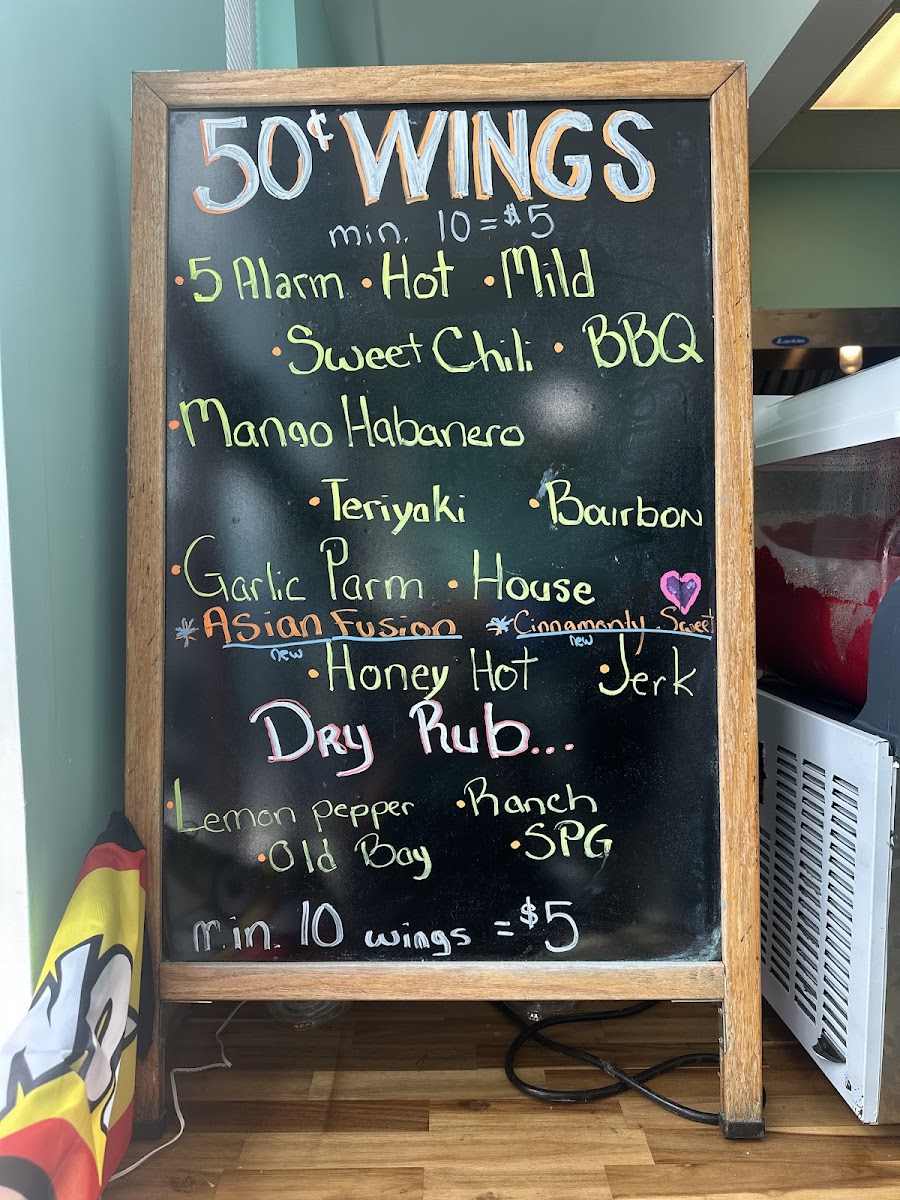 50¢ WINGS
min. 10 = $5
• 5 Alarm • Hot • Mild
• Sweet Chili • BBQ
• Mango Habanero
• Teriyaki • Bourbon
• Garlic Parm • House
* Asian Fusion * Cinnamonly Sweet
new new
• Honey Hot • Jerk
Dry Rub...
• Lemon pepper • Ranch
• Old Bay • SPG
min. 10 wings = $5